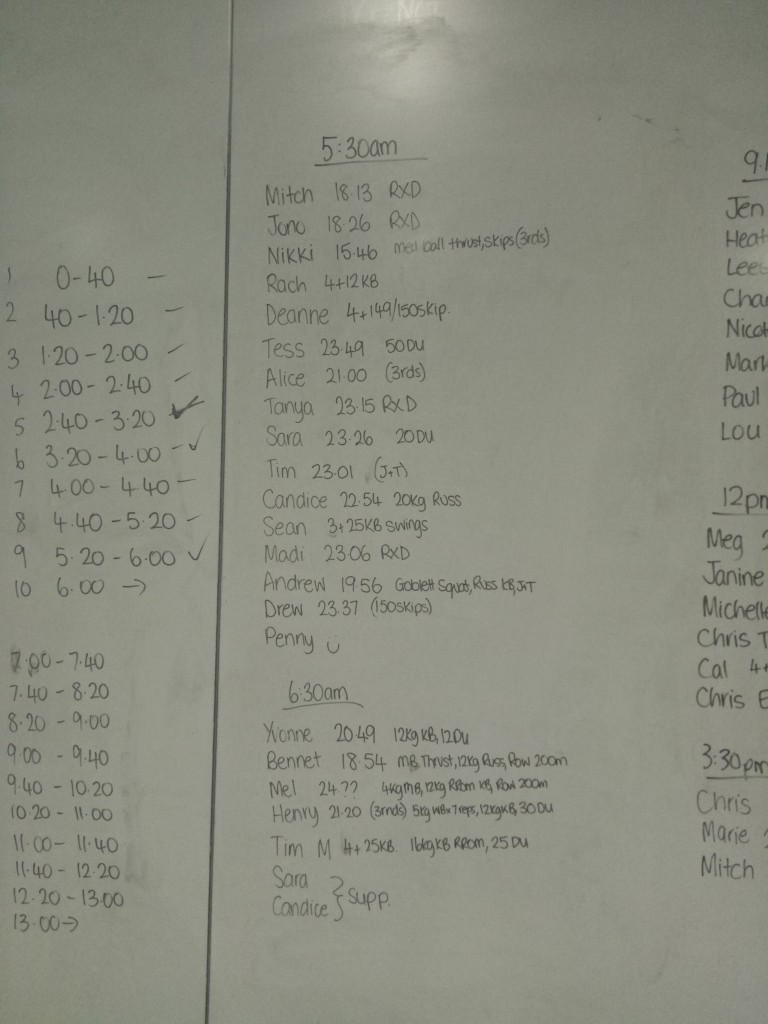 1 0-40 —
2 40-1.20 —
3 1.20-2.00 —
4 2.00-2.40 —
5 2.40-3.20 ✓
6 3.20-4.00 - ✓
7 4.00-4.40 —
8 4.40-5.20 -
9 5.20-6.00 ✓
10 6.00 →
7.00-7.40
7.40-8.20
8.20-9.00
9.00-9.40
9.40-10.20
10.20-11.00
11.00-11.40
11.40-12.20
12.20-13.00
13.00→
5:30am
Mitch 18.13 RXD
Jono 18.26 RXD
Nikki 15.46 med ball thrust, skips (3rds)
Rach 4+12KB
Deanne 4+149/150skip.
Tess 23.49 50DU
Alice 21.00 (3rds)
Tanya 23.15 RXD
Sara 23.26 20DU
Tim 23.01 (J+T)
Candice 22.54 20kg Russ
Sean 3+25KB swings
Madi 23.06 RXD
Andrew 19.56 Goblett Squat, Russ KB, J+T
Drew 23.37 (150skips)
Penny
6:30am
Yvonne 20.49 12kg KB, 12DU
Bennet 18.54 MB Thrust, 12kg Russ, Row 200m
Mel 24.?? 4kg MB, 12kg RRom KB, Row 200m
Henry 21.20 (3rnds) 5kg WBx7reps, 12kgKB, 30DU
Tim M 4+25KB. 16kg KB RRom, 25 DU
Sara
Candice } Supp.
9.1
Jen
Heat
Lee
Char
Nicol
Mark
Paul
Lou
12pm
Meg 2
Janine
Michelle
Chris T
Cal 4+
Chris E
3:30pm
Chris
Marie
Mitch